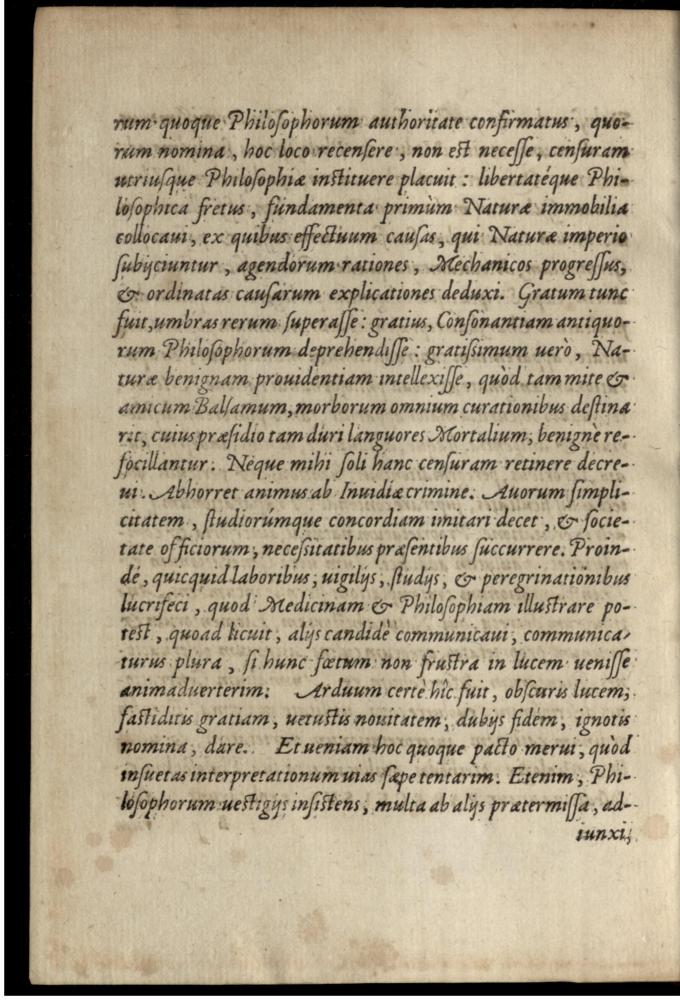 rum quoque Philosophorum authoritate confirmatus, quo-
rum nomina, hoc loco recensere, non est necesse, censuram
utriusque Philosophiæ instituere placuit: libertatéque Phi-
losophica fretus, fundamenta primùm Naturæ immobilia
collocaui, ex quibus effectuum causas, qui Naturæ imperio
subijciuntur, agendorum rationes, Mechanicos progressus,
& ordinatas causarum explicationes deduxi. Gratum tunc
fuit, umbras rerum superasse: gratius, Consonantiam antiquo-
rum Philosophorum deprehendisse: gratissimum uerò, Na-
turæ benignam prouidentiam intellexisse, quòd tam mite &
amicum Balsamum, morborum omnium curationibus destina
rit, cuius præsidio tam duri languores Mortalium, benignè re-
focillantur. Neque mihi soli hanc censuram retinere decre-
ui. Abhorret animus ab Inuidiæ crimine. Auorum simpli-
citatem, studiorúmque concordiam imitari decet, & socie-
tate officiorum, necessitatibus præsentibus succurrere. Proin-
dé, quicquid laboribus, uigilijs, studijs, & peregrinationibus
lucrifeci, quod Medicinam & Philosophiam illustrare po-
test, quoad licuit, alijs candidè communicaui, communica-
turus plura, si hunc fœtum non frustra in lucem uenisse
animaduerterim. Arduum certè hîc fuit, obscuris lucem,
fastiditis gratiam, uetustis nouitatem, dubijs fidem, ignotis
nomina, dare. Et ueniam hoc quoque pacto merui, quòd
insuetas interpretationum uias sæpe tentarim. Etenim, Phi-
losophorum uestigijs insistens, multa ab alijs prætermissa, ad-
iunxi;